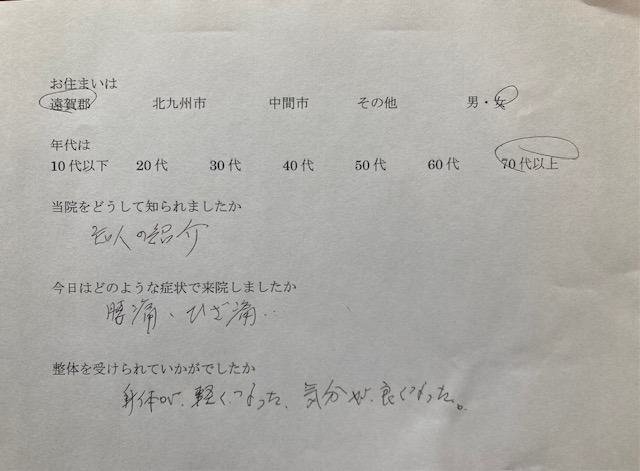 お住まいは
遠賀郡 北九州市 中間市 その他 男・女
年代は
10代以下 20代 30代 40代 50代 60代 70代以上
当院をどうして知られましたか
知人の紹介
今日はどのような症状で来院しましたか
腰痛、ひざ痛
整体を受けられていかがでしたか
身体が、軽くなった、気分が、良くなった。